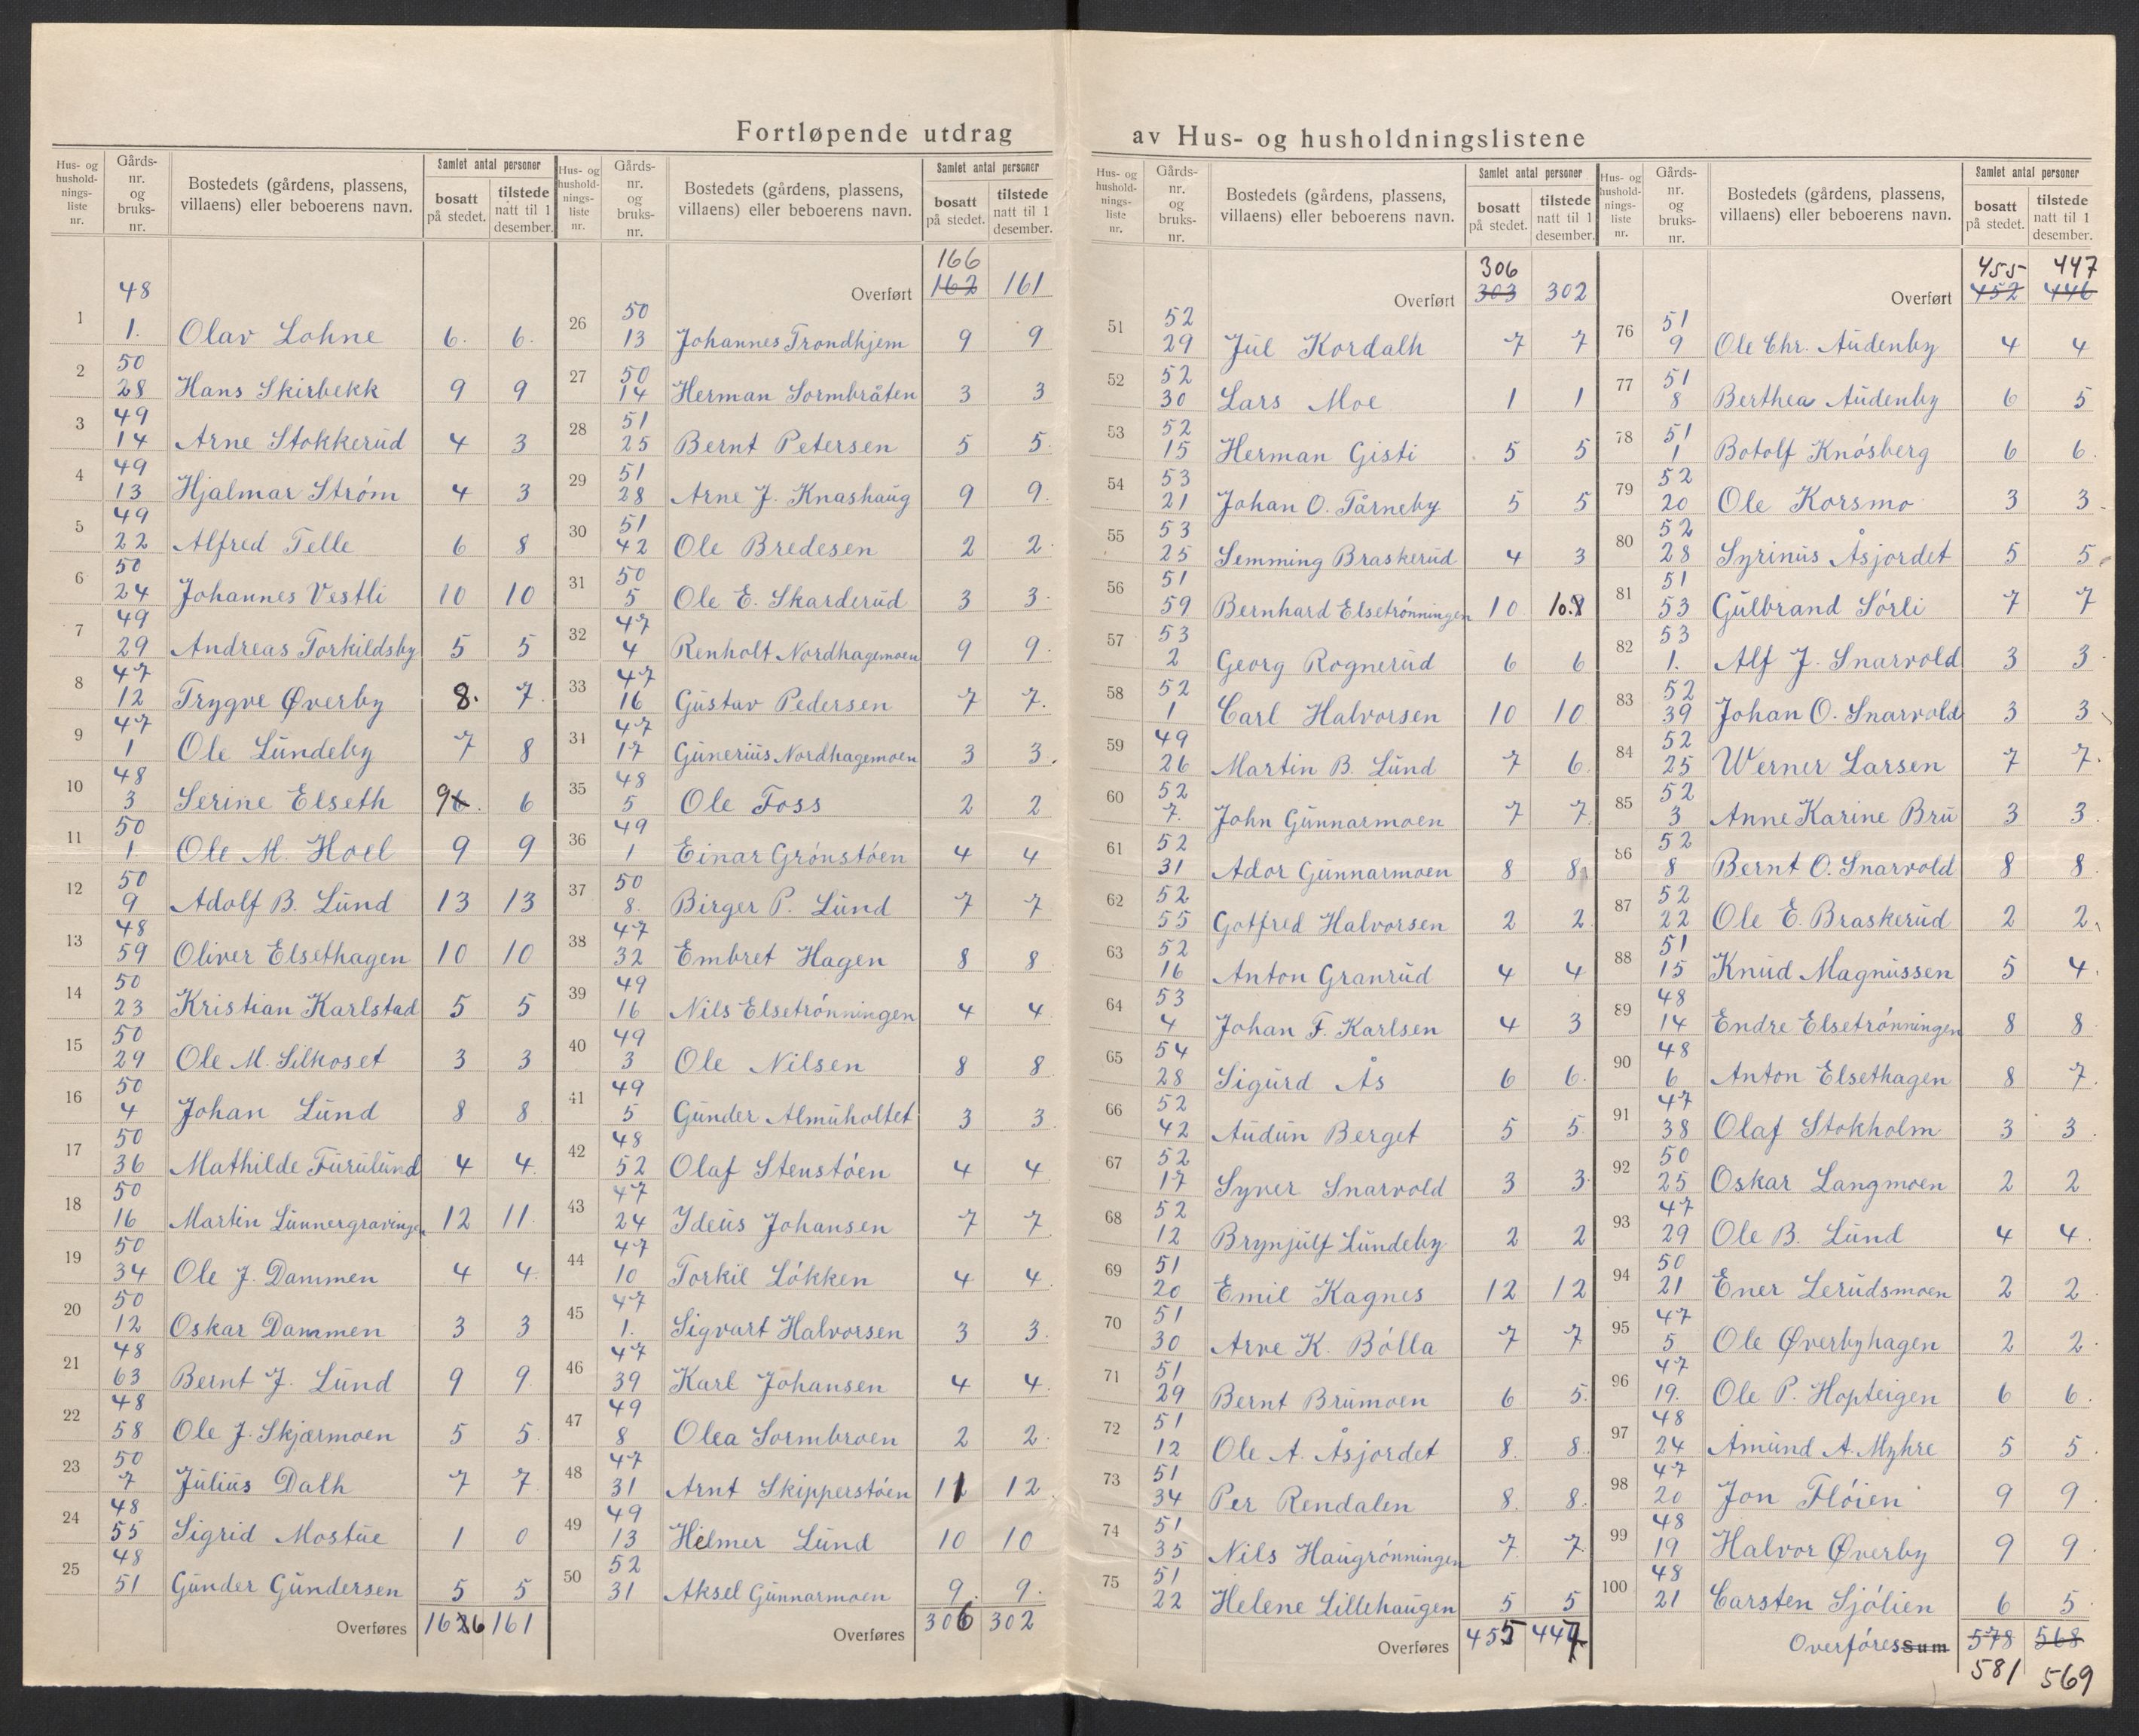 Fortløpende utdrag av Hus- og husholdningslistene
Hus- og hushold-nings-liste nr. | Gårds-nr. og bruks-nr. | Bostedets (gårdens, plassens, villaens) eller beboerens navn. | Samlet antal personer: bosatt på stedet. | tilstede natt til 1 desember.
1 | 48 1. | Olav Lohne | 6. | 6.
2 | 50 28 | Hans Skirbekk | 9 | 9
3 | 49 14 | Arne Stokkerud | 4 | 3
4 | 49 13 | Hjalmar Strøm | 4 | 3
5 | 49 22 | Alfred Telle | 6 | 8
6 | 50 24 | Johannes Vestli | 10 | 10
7 | 49 29 | Andreas Torkildsby | 5 | 5
8 | 47 12 | Trygve Øverby | 8. | 7.
9 | 47 1 | Ole Lundeby | 7 | 8
10 | 48 3 | Serine Elseth | 9 6. | 6
11 | 50 1 | Ole M. Hoel | 9 | 9
12 | 50 9 | Adolf B. Lund | 13 | 13
13 | 48 59 | Oliver Elsethagen | 10 | 10
14 | 50 23 | Kristian Karlstad | 5 | 5
15 | 50 29 | Ole M. Silkoset | 3 | 3
16 | 50 4 | Johan Lund | 8 | 8
17 | 50 36 | Mathilde Furulund | 4 | 4
18 | 50 16 | Martin Lunnergravingen | 12 | 11.
19 | 50 34 | Ole J. Dammen | 4 | 4.
20 | 50 12 | Oskar Dammen | 3 | 3
21 | 48 63 | Bernt J. Lund | 9 | 9.
22 | 48 58 | Ole J. Skjærmoen | 5 | 5
23 | 50 7 | Julius Dalh | 7 | 7
24 | 48 55 | Sigrid Mostue | 1 | 0
25 | 48 51 | Gunder Gundersen | 5 | 5
Overføres | 1626 | 161
Hus- og hushold-nings-liste nr. | Gårds-nr. og bruks-nr. | Bostedets (gårdens, plassens, villaens) eller beboerens navn. | Samlet antal personer: bosatt på stedet. | tilstede natt til 1 desember.
Overført | 166 162 | 161
26 | 50 13 | Johannes Trondhjem | 9 | 9
27 | 50 14 | Herman Sormbråten | 3 | 3
28 | 51 25 | Bernt Petersen | 5 | 5.
29 | 51 28 | Arne J. Knashaug | 9 | 9.
30 | 51 42 | Ole Bredesen | 2 | 2.
31 | 50 5 | Ole E. Skarderud | 3 | 3.
32 | 47 4 | Renholt Nordhagemoen | 9 | 9.
33 | 47 16 | Gustav Pedersen | 7 | 7.
34 | 47 17 | Gunerius Nordhagemoen | 3 | 3.
35 | 48 5 | Ole Foss | 2 | 2
36 | 49 1 | Einar Grønstøen | 4 | 4
37 | 50 8. | Birger P. Lund | 7 | 7
38 | 47 32 | Embret Hagen | 8 | 8
39 | 49 16 | Nils Elsetrønningen | 4 | 4.
40 | 49 3 | Ole Nilsen | 8 | 8
41 | 49 5 | Gunder Almuholtet | 3 | 3.
42 | 48 52 | Olaf Stenstøen | 4 | 4
43 | 47 24 | Ydeus Johansen | 7 | 7
44 | 47 10 | Torkil Løkken | 4 | 4.
45 | 47 1. | Sigvart Halvorsen | 3 | 3.
46 | 47 39 | Karl Johansen | 4 | 4.
47 | 49 8 | Olea Sormbroen | 2 | 2.
48 | 47 31 | Arnt Skipperstøen | 11 | 12.
49 | 49 13 | Helmer Lund | 10 | 10
50 | 52 31 | Aksel Gunnarmoen | 9. | 9.
Overføres | 306 | 302
Hus- og hushold-nings-liste nr. | Gårds-nr. og bruks-nr. | Bostedets (gårdens, plassens, villaens) eller beboerens navn. | Samlet antal personer: bosatt på stedet. | tilstede natt til 1 desember.
Overført | 306 303 | 302
51 | 52 29 | Jul Kordalh | 7 | 7
52 | 52 30 | Lars Moe | 1 | 1
53 | 52 15 | Herman Gisti | 5 | 5
54 | 53 21 | Johan O. Tårneby | 5 | 5
55 | 53 25 | Semming Braskerud | 4 | 3
56 | 51 59 | Bernhard Elsetrønningen | 10 | 10.8
57 | 53 2 | Georg Rognerud | 6 | 6
58 | 52 1 | Carl Halvorsen | 10 | 10
59 | 49 26 | Martin B. Lund | 7 | 6.
60 | 52 7. | John Gunnarmoen | 7 | 7
61 | 52 31 | Ador Gunnarmoen | 8 | 8
62 | 52 55 | Gotfred Halvorsen | 2 | 2
63 | 52 16 | Anton Granrud | 4 | 4
64 | 53 4 | Johan F. Karlsen | 4 | 3
65 | 54 28 | Sigurd Ås | 6 | 6.
66 | 52 42 | Audun Berget | 5 | 5.
67 | 52 17 | Syver Snarvold | 3 | 3.
68 | 52 12 | Brynjulf Lundeby | 2 | 2
69 | 51 20 | Emil Kagnes | 12 | 12
70 | 51 30 | Arve K. Bölla | 7 | 7
71 | 51 29 | Bernt Brumoen | 6 | 5.
72 | 51 12 | Ole A. Åsjordet | 8. | 8.
73 | 51 34 | Per Rendalen | 8. | 8.
74 | 51 35 | Nils Haugrønningen | 7. | 7.
75 | 51 22 | Helene Lillehaugen | 5 | 5
Overføres | 455 | 447
Hus- og hushold-nings-liste nr. | Gårds-nr. og bruks-nr. | Bostedets (gårdens, plassens, villaens) eller beboerens navn. | Samlet antal personer: bosatt på stedet. | tilstede natt til 1 desember.
Overført | 455 452 | 447 446
76 | 51 9 | Ole Chr. Audenby | 4 | 4
77 | 51 8 | Berthea Audenby | 6 | 5
78 | 51 1 | Botolf Knøsberg | 6 | 6.
79 | 52 20 | Ole Korsmo | 3 | 3.
80 | 52 28 | Syrinus Åsjordet | 5 | 5
81 | 51 53 | Gulbrand Sørli | 7 | 7
82 | 53 1. | Alf J. Snarvold | 3 | 3.
83 | 52 39 | Johan O. Snarvold | 3 | 3
84 | 52 25 | Werner Larsen | 7 | 7.
85 | 52 3 | Anne Karine Bru | 3 | 3.
86 | 52 8 | Bernt O. Snarvold | 8 | 8
87 | 52 22 | Ole E. Braskerud | 2 | 2
88 | 51 15 | Knud Magnussen | 5 | 4.
89 | 48 14 | Endre Elsetrønningen | 8 | 8
90 | 48 6 | Anton Elsethagen | 8 | 7.
91 | 47 38 | Olaf Stokholm | 3 | 3.
92 | 50 25 | Oskar Langmoen | 2 | 2
93 | 47 29 | Ole B. Lund | 4 | 4.
94 | 50 21 | Ener Lerudsmoen | 2 | 2.
95 | 47 5 | Ole Øverbyhagen | 2 | 2.
96 | 47 19. | Ole P. Hopteigen | 6 | 6.
97 | 48 24 | Amund A. Myhre | 5 | 5.
98 | 47 20 | Jon Fløien | 9 | 9.
99 | 48 19 | Halvor Øverby | 9 | 9.
100 | 48 21 | Carsten Sjølien | 6 | 5.
Overføres Sum | 578 | 568
581 | 569